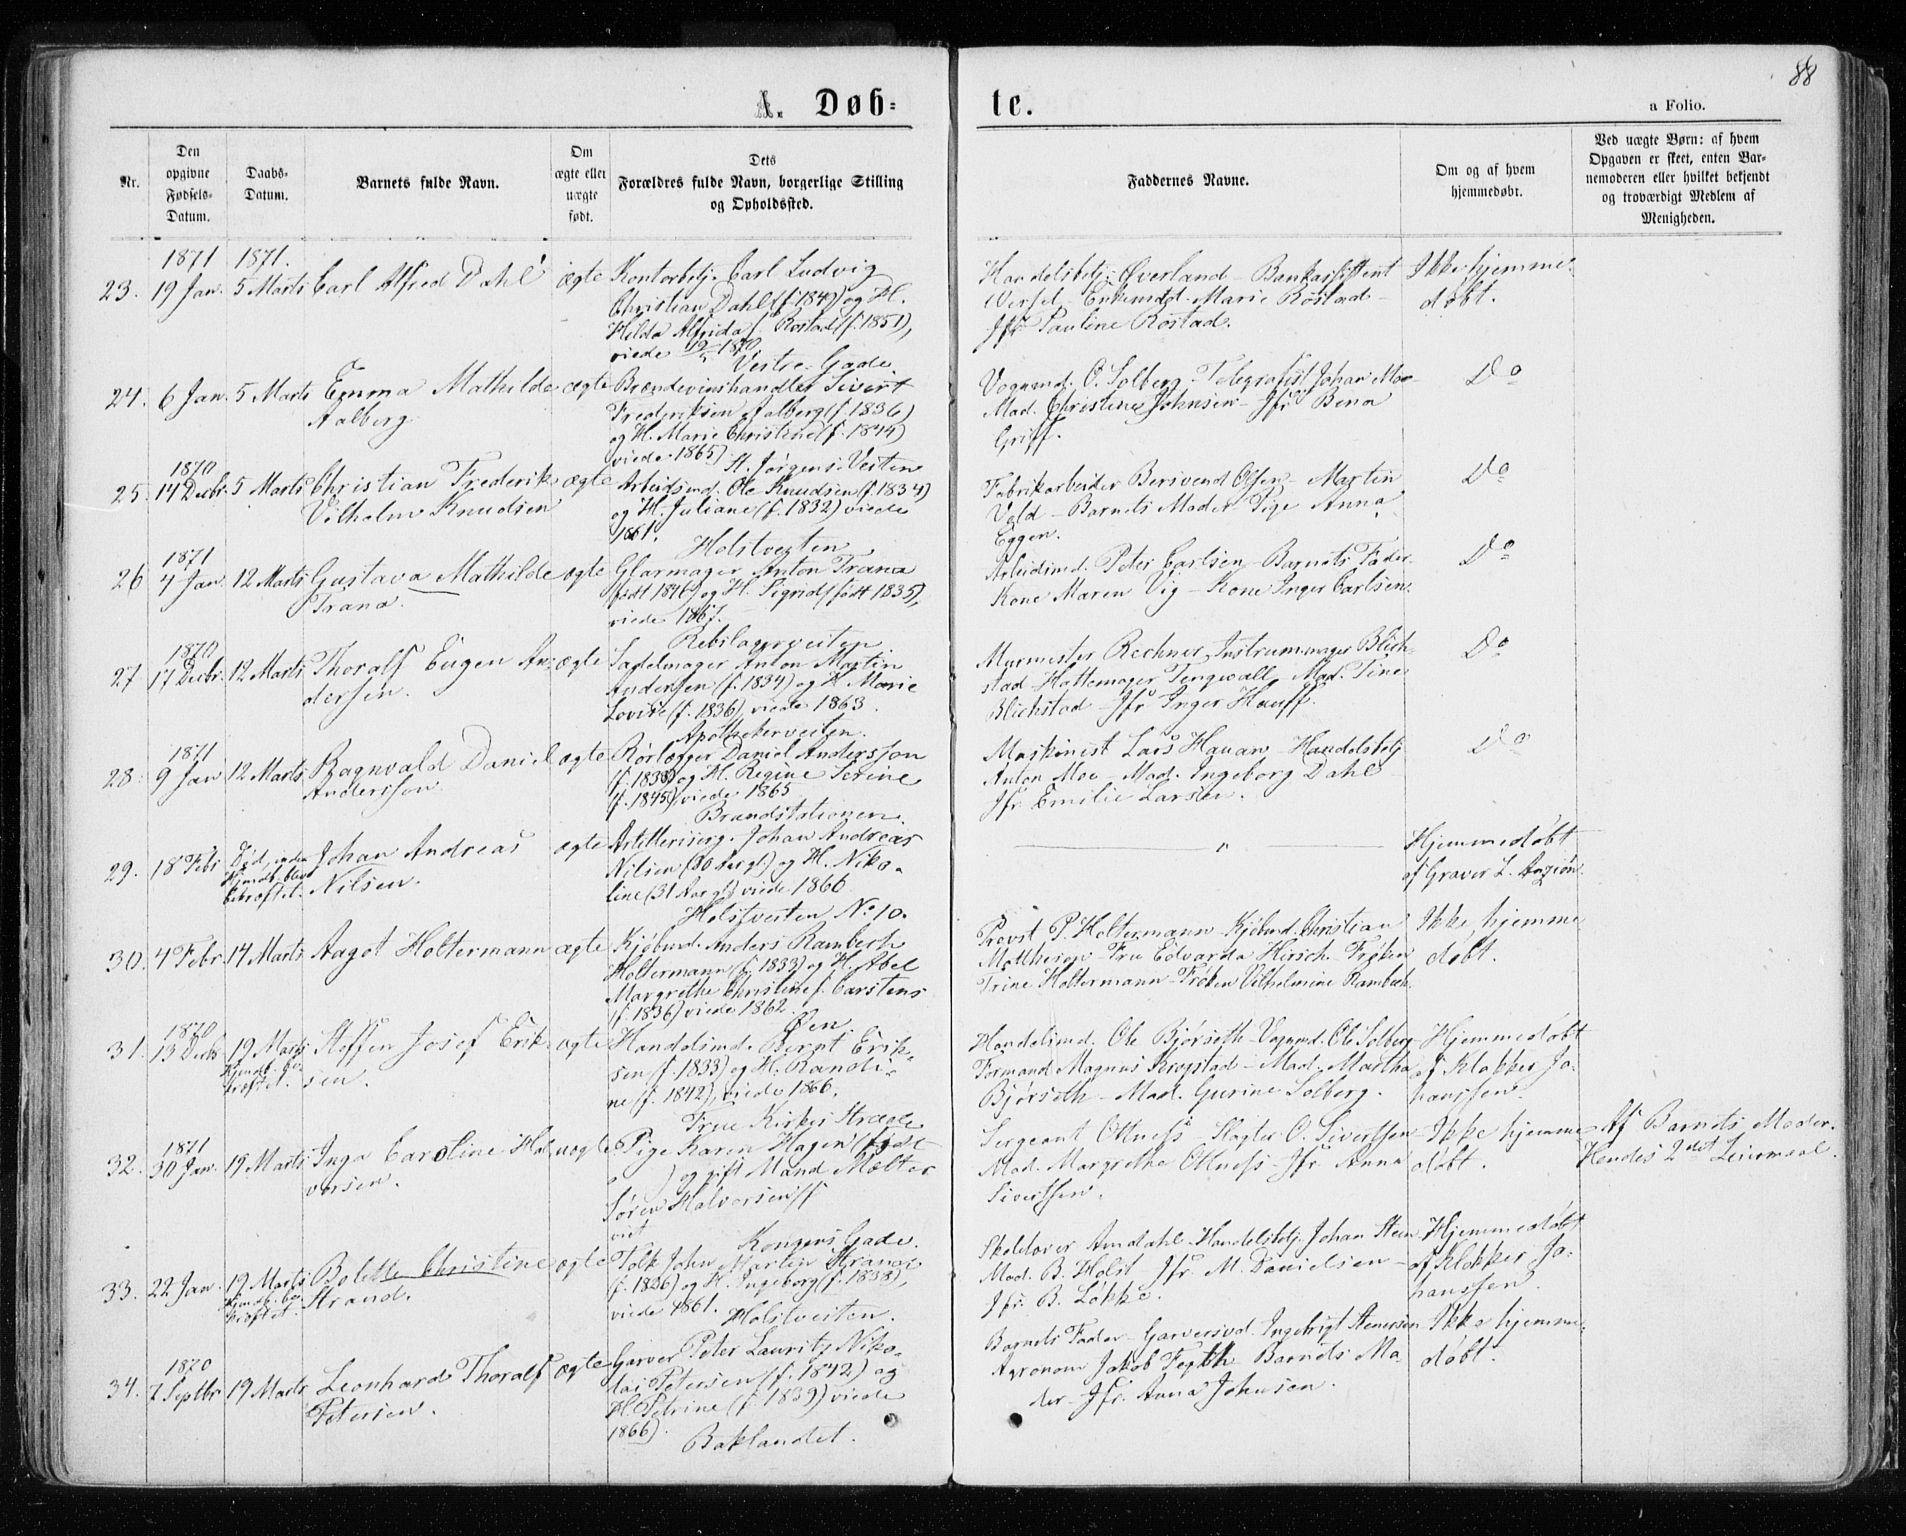 88
A. Døb=
te.
a Folio.
Nr.
Den opgivne Fødsels-Datum.
Daabs-Datum.
Barnets fulde Navn.
Om ægte eller uægte født.
Dets Forældres fulde Navn, borgerlige Stilling og Opholdssted.
Faddernes Navne.
Om og af hvem hjemmedøbt.
Ved uægte Børn: af hvem Opgaven er skeet, enten Barnemoderen eller hvilket bekjendt og troværdigt Medlem af Menigheden.
1871 1871.
23. 19 Jan. 5 Marts Carl Alfred Dahl ægte Kontorbetj. Carl Ludvig
Christian Dahl (f. 1847) og H.
Hilda Alfrida f. Rostad (f. 1851),
viede 1870.
Vestre Gade.
Handelsbetj. Øverland - Bankassistent
Mad. Marie Rostad -
Jfr Pauline Rostad.
Ikke hjemme-
døbt.
24. 6 Jan. 5 Marts Emma Mathilde ægte Brændevinshandler Sivert
Aalberg
Frederiksen Aalberg (f. 1836)
og H. Marie Christine (f. 1844)
viede 1865)
St. Jörgens Veiten
Vognmd. O. Solberg - Telegrafist Johan Moe -
Mad. Christine Johnsen - Jfr Bena
Griff.
Do
1870
25. 14 Decbr. 5 Marts Christian Frederik ægte Arbeidsmd. Ole Knudsen (f. 1834)
Vilhelm Knudsen
og H. Juliane (f. 1832) viede
1861.
Holstveiten
Fabrikarbeider Berivend Olsen - Martin
Vold - Barnets Moder Pige Anna
Eggen.
Do
1871
26 4 Jan. 12 Marts Gustava Mathilde ægte Glarmager Anton Trana
Trana.
født 1846) og H. Sigrid (født 1835),
viede 1867.
Rebslagerveiten
Arbeidsmd. Peter Carlsen - Barnets Fader -
Kone Maren Vig - Kone Inger Carlsen.
Do
1870
27 17 Decbr. 12 Marts Thoralf Eugen An- ægte Sadelmager Anton Martin
dersen.
Andersen (f. 1834) og H. Marie
Lovise (f. 1836), viede 1863.
Apothekerveiten.
Murmester Rechner Instrummager Blich-
stad - Hattemager Tengwall, Mad. Tine
Blichstad - Jfr Inger Hauff.
Do
1871
28. 9 Jan 12 Marts Ragnvald Daniel ægte Rørlægger Daniel Andersson
Andersson.
(f. 1838) og H. Regine Serine
(f. 1845), viede 1865
Brandstationen.
Maskinist Lars Hauan - Handelsbetj.
Anton Moe - Mad. Ingeborg Dahl -
Jfr Emilie Larsen.
Do
29. 18 Febr Død, inden Hjemdb. blev bekræftet. Johan Andreas ægte Artilleriserg. Johan Andreas
Nilsen.
Nilsen (30 Aar gl.) og H. Niko-
line (31 Aar gl) viede 1866
Holstveiten No 10.
"
Hjemmedøbt
af Graver L.
30. 4 Febr 14 Marts Aagot Holtermann ægte Kjøbmd. Anders Rambech
Holtermann (f. 1833) og H. Abel
Margrethe Christine f. Carstens
(f. 1836) viede 1862.
Øen.
Provst P. Holtermann - Kjøbmd. Christian
Matthesen - Fru Edvarda Hirsch - Frøken
Trine Holtermann - Frøken Vilhelmine Rambech.
Ikke hjemme
døbt.
1870
31. 13 Decbr 19 Marts Steffen Josef Erik- ægte Handelsmd. Bernt Erik-
Hjemdb. be-
kræftet.
sen.
sen (f. 1833) og H. Randi-
ne (f. 1842), viede 1866.
Frue Kirkes Stræde
Handelsmd. Ole Bjørseth - Vognmd. Ole Solberg
Formand Magnus Krogstad - Mad. Martha
Bjørseth - Mad. Gurine Solberg.
Hjemmedøbt
af Klokker Jo-
hanssen.
1871
32. 30 Jan. 19 Marts Inga Caroline Hal- uægte Pige Karen Hagen (født
vorsen.
) og gift Mand Mælter
Søren Halvorsen
Kongens Gade.
Sergeant Ottness - Slagter O. Sivertsen
Mad. Margrethe Ottness - Jfr Anna
Sivertsen.
Ikke hjemme
døbt.
Af Barnets Moder.
Hendes 2det Leiermaal.
33. 22 Jan. 19 Marts Bolette Christine ægte Tolk John Martin Strand
Hjemdb. be-
kræftet.
Strand.
(f. 1836) og H. Ingeborg (f. 1838),
viede 1861.
Holstveiten.
Skolelærer Amdahl - Handelsbetj. Johan Steen
Mad. B. Holst - Jfr. M. Danielsen -
Jfr. B. Løkke.
Hjemmedøbt
af Klokker Jo-
hanssen.
1870
34. 2 Septbr 19 Marts Leonhard Thoralf ægte Garver Peter Lauritz Niko-
Petersen.
lai Petersen (f. 1842) og
H. Petrine (f. 1839) viede
1866).
Baklandet.
Barnets Fader - Garversvd. Ingebrigt Stenersen
Agronom Jakob Fegth Barnets Mo
der - Jfr. Anna Johnsen.
Ikke hjemme-
døbt.